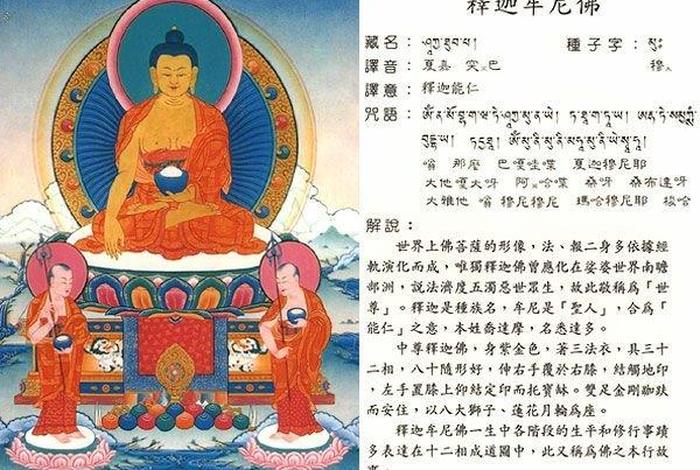 釋迦牟尼佛
藏名：ཤཱཀྱ་ཐུབ་པ། 種子字：མུཿ
譯音：夏嘉 突巴 穆
譯意：釋迦能仁
咒語：ཨོཾ་ན་མོ་བྷ་ག་ཝ་ཏེ་ཤཱཀྱ་མུ་ན་ཡེ། ཏ་ཐཱ་ག་ཏཱ་ཡ། ཨརྷ་ཏེ་སམྱཀྶཾ་
བུདྡྷཱ་ཡ། ཏདྱཐཱ། ཨོཾ་མུ་ནི་མུ་ནི་མ་ཧཱ་མུ་ནི་ཡེ་སྭཱ་ཧཱ།
嗡 那麼 巴嘎哇喋 夏迦穆尼耶
大他嘎大呀 阿哈喋 桑呀 桑布達呀
大雅他 嗡 穆尼穆尼 瑪哈穆尼耶 梭哈
解說：
世界上佛菩薩的形像，法、報二身多依據經
軌演化而成，唯獨釋迦佛曾應化在娑婆世界南瞻
部洲，說法濟度五濁惡世眾生，故此敬稱爲「世
尊」。釋迦是種族名，牟尼是「聖人」，合爲「
能仁」之意，本姓喬達摩，名悉達多。
中尊釋迦佛，身紫金色，著三法衣，具三十
二相，八十隨形好，伸右手覆於右膝，結觸地印
，左手置膝上仰結定印而托寶缽。雙足金剛跏趺
而安住，以八大獅子、蓮花月輪爲座。
釋迦牟尼佛一生中各階段的生平和修行事蹟
多表達在十二相成道圖中，此又稱爲佛之本行故